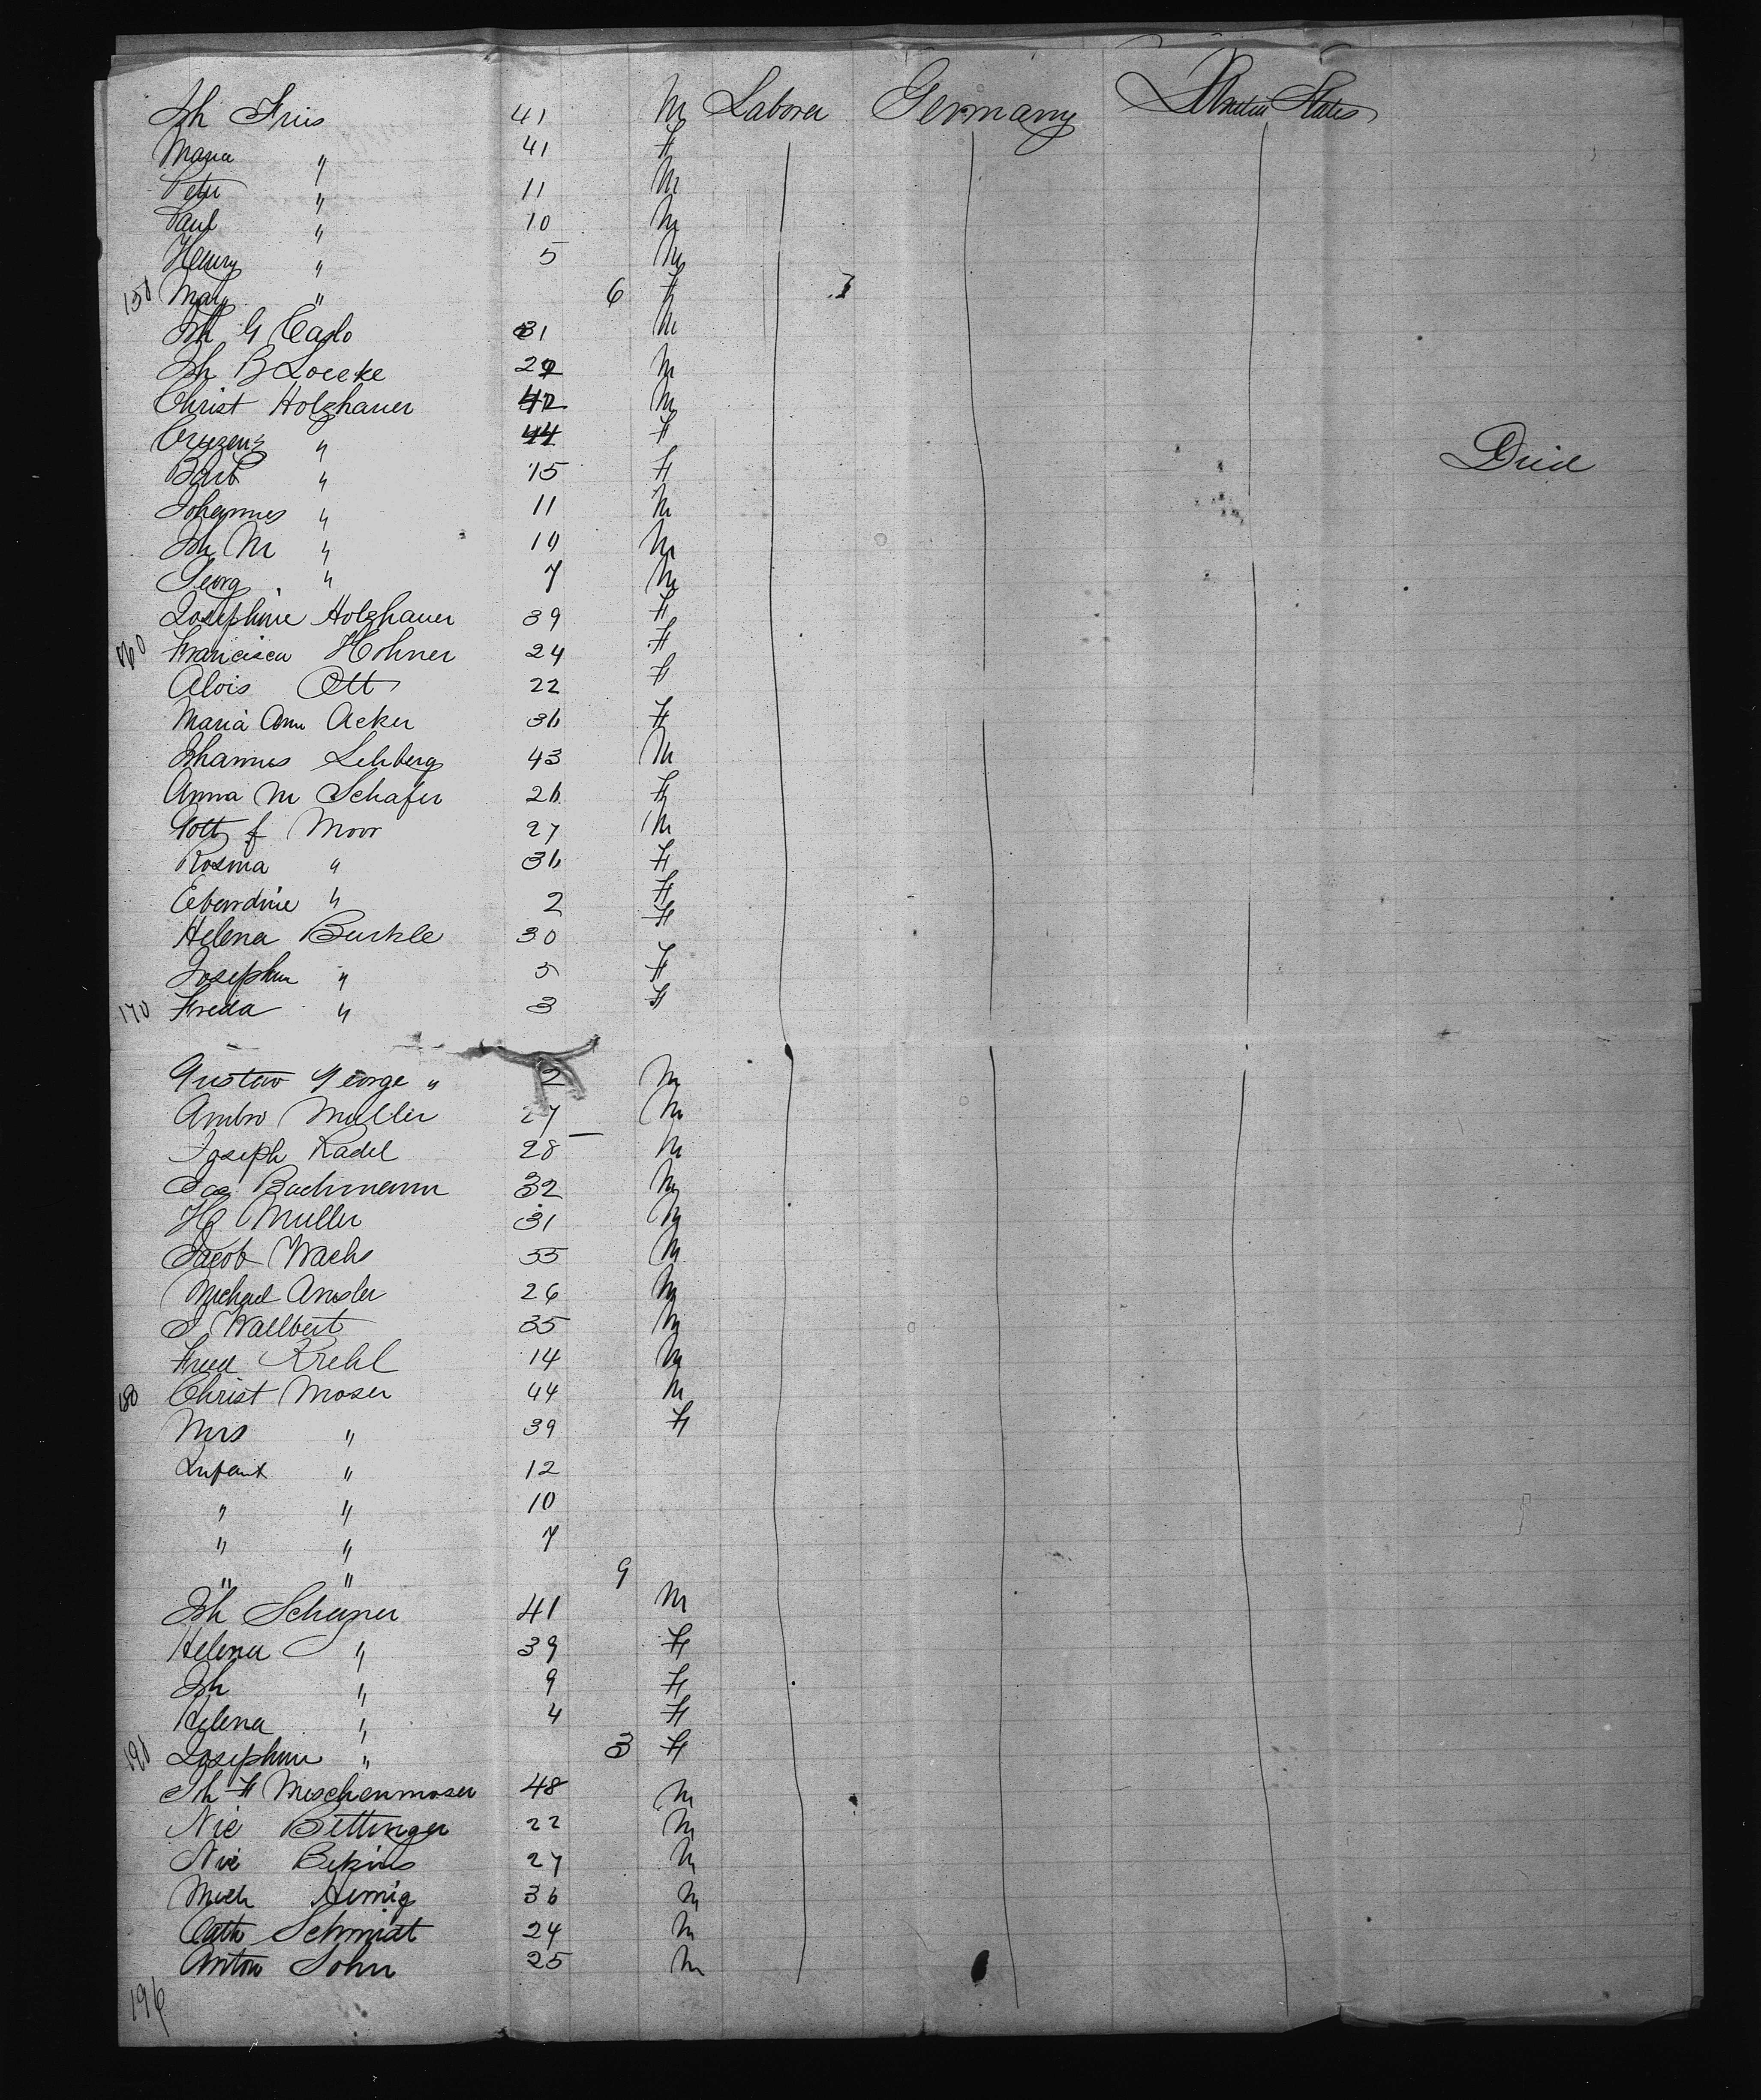 Joh Friis 41 M Laborer Germany United States
Maria " 41 F
Peter " 11 M
Paul " 10 M
Henry " 5 M
150 Mary " 6 F
Joh G Caslo 31 M
Joh B Loecke M
Christ Holzhauer 42 M
" 44 F Died
Barb " 15 F
Johannes " 11 M
Joh M " 10 M
Georg " 7 M
Josephine Holzhauer 39 F
160 Francisca Hohner 24 F
Alois Ott 22 F
Maria Ann Acker 36 F
Johannes Lehberg 43 M
Anna M Schafer 26 F
Gott f Moor 27 M
Rosina " 36 F
Eberrdine " 2 F
Helena Burkle 30 F
Josephin " 5 F
170 Freda " 3 F
Gustav George " 2 M
Ambro Muller 27 M
Joseph Radel 28 M
Jos Bachmann 32 M
Muller 31 M
Jacob Wachs 55 M
Michael Amsler 26 M
J Wallbert 35 M
Fred Krehl 14 M
180 Christ Moser 44 M
Mrs " 39 F
Infant " 12
" " 10
" " 7
" " 9
Joh Scheiner 41 M
Helena " 39 F
Joh " 9 F
Helena " 4 F
190 Josephine " 3 F
Joh F Meschenmoser 48 M
Nic Bettinger 22 M
Nic 27 M
Mich Hemig 36 M
Cath Schmidt 24 M
Anton John 25 M
196